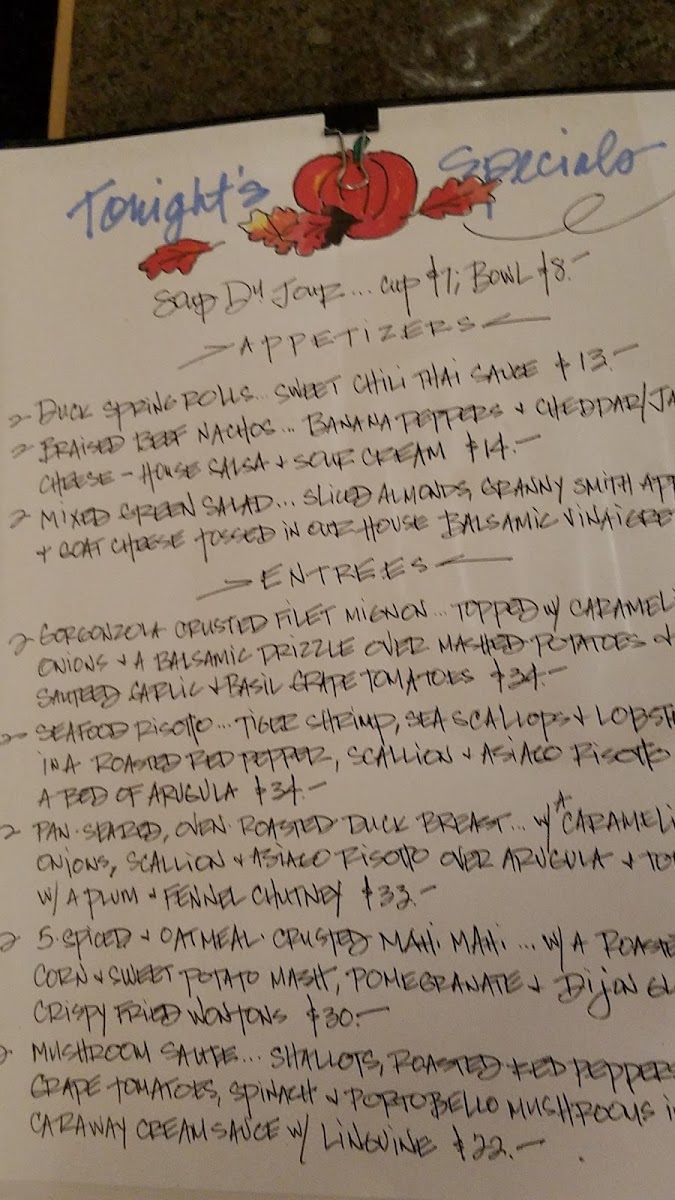 Tonight's Specials
Soup Du Jour... cup $7; Bowl $8.-
APPETIZERS
DUCK SPRING ROLLS... SWEET CHILI THAI SAUCE $13.-
BRAISED BEEF NACHOS... BANANA PEPPERS & CHEDDAR/JA
CHEESE - HOUSE SALSA & SOUR CREAM $14.-
MIXED GREEN SALAD... SLICED ALMONDS, GRANNY SMITH APP
& GOAT CHEESE TOSSED IN OUR HOUSE BALSAMIC VINAIGRE
ENTREES
GORGONZOLA CRUSTED FILET MIGNON... TOPPED W/ CARAMELI
ONIONS & A BALSAMIC DRIZZLE OVER MASHED POTATOES &
SAUTEED GARLIC & BASIL GRAPE TOMATOES $34.-
SEAFOOD RISOTTO... TIGER SHRIMP, SEA SCALLOPS & LOBST
IN A ROASTED RED PEPPER, SCALLION & ASIAGO RISOTTO
A BED OF ARUGULA $34.-
PAN-SEARED, OVEN-ROASTED DUCK BREAST... W/ A CARAMELI
ONIONS, SCALLION & ASIAGO RISOTTO OVER ARUGULA & TO
W/ A PLUM & FENNEL CHUTNEY $33.-
5-SPICED & OATMEAL-CRUSTED MAHI MAHI... W/ A ROASTE
CORN & SWEET POTATO MASH, POMEGRANATE & DIJON GL
CRISPY FRIED WONTONS $30.-
MUSHROOM SAUTE... SHALLOTS, ROASTED RED PEPPERS
GRAPE TOMATOES, SPINACH & PORTOBELLO MUSHROOMS i
CARAWAY CREAM SAUCE W/ LINGUINE $22.-